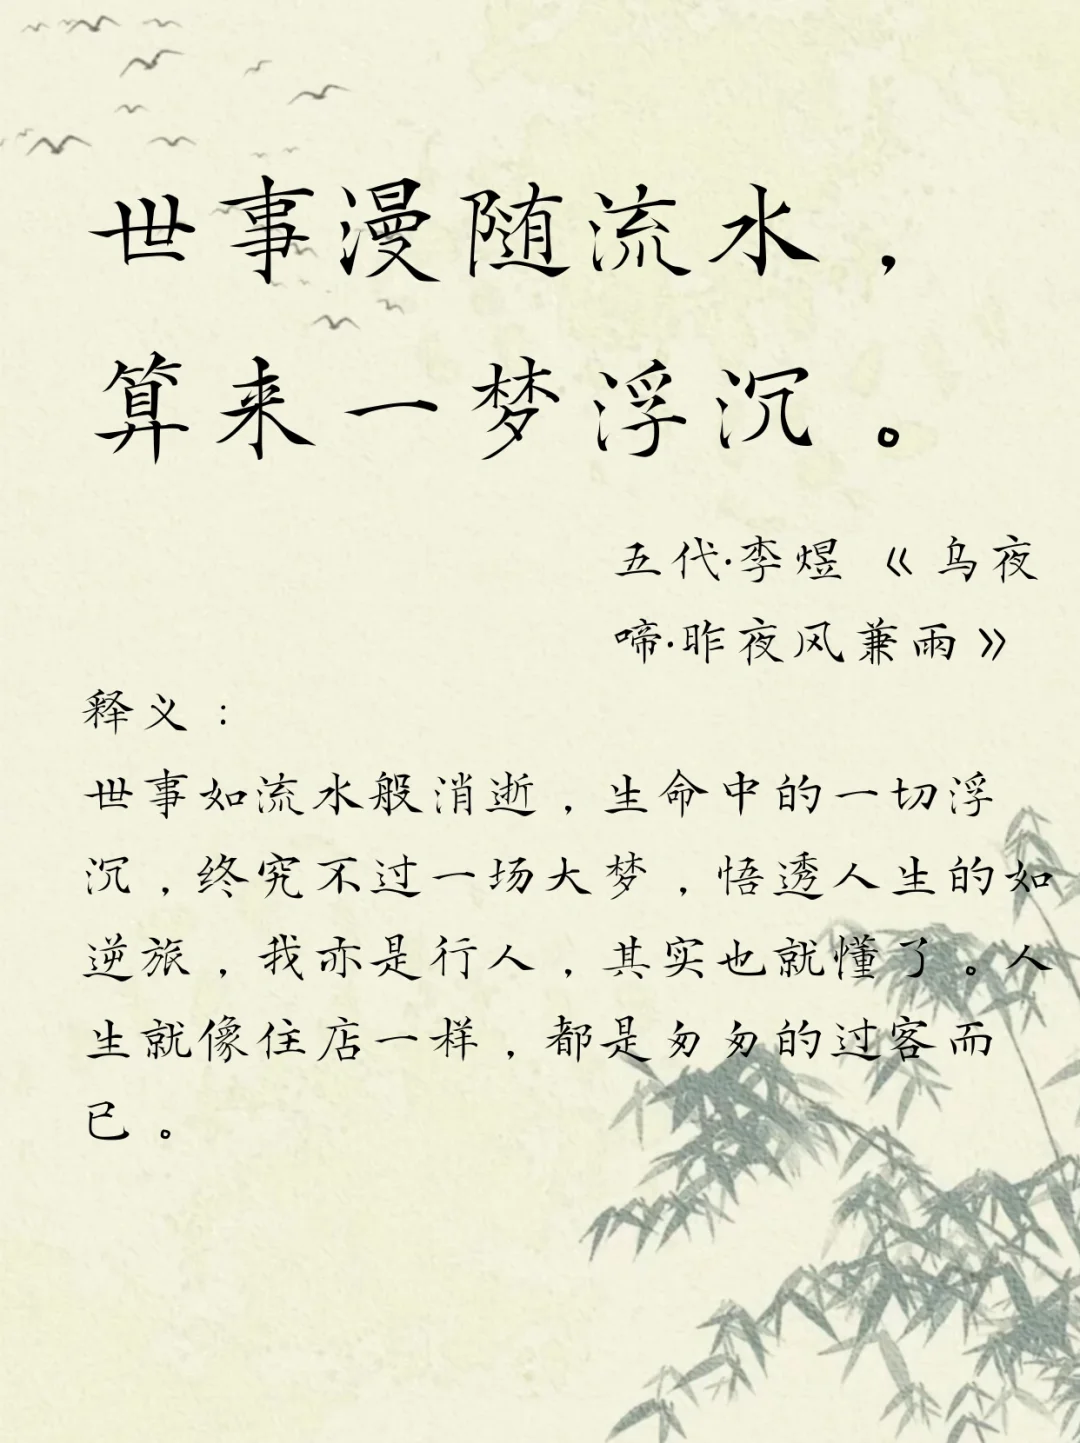 世事漫随流水，
算来一梦浮沉。
五代·李煜《乌夜
啼·昨夜风兼雨》
释义：
世事如流水般消逝，生命中的一切浮
沉，终究不过一场大梦，悟透人生的如
逆旅，我亦是行人，其实也就懂了。人
生就像住店一样，都是匆匆的过客而
已。